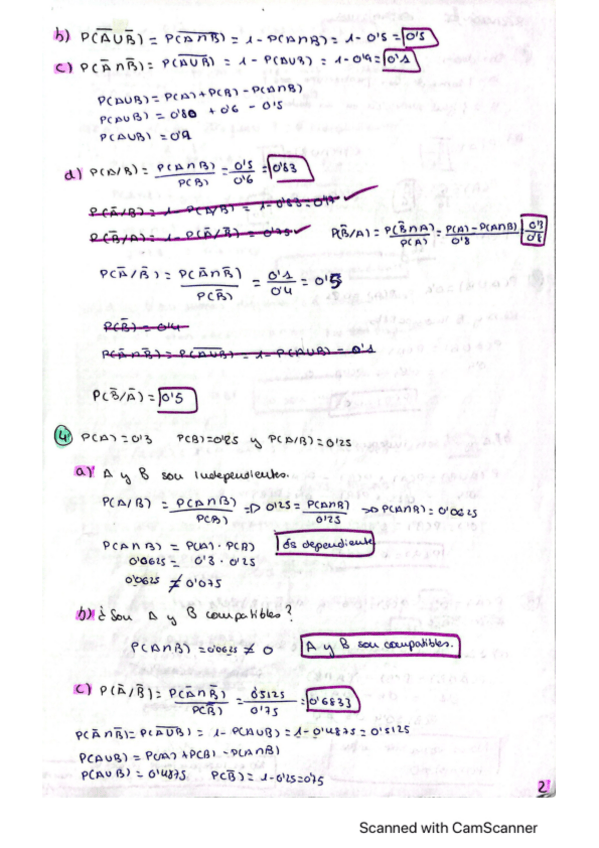 b) P(A̅∪B̅) = P(A̅∩̅B̅) = 1 - P(A∩B) = 1 - 0'5 = 0'5
c) P(A̅∩B̅) = P(A̅∪̅B̅) = 1 - P(A∪B) = 1 - 0'9 = 0'1
P(A∪B) = P(A) + P(B) - P(A∩B)
P(A∪B) = 0'80 + 0'6 - 0'5
P(A∪B) = 0'9
d) P(A/B) = P(A∩B)/P(B) = 0'5/0'6 = 0'83
P(A̅/B) = 1 - P(A/B) = 1 - 0'83 = 0'17
P(B̅/A) = 1 - P(A̅/B) = 0'75
P(B̅/A) = P(B̅∩A)/P(A) = P(A) - P(A∩B)/0'8 = 0'3/0'8
P(A̅/B̅) = P(A̅∩B̅)/P(B̅) = 0'1/0'4 = 0'5
P(B̅) = 0'4
P(A̅∩B̅) = P(A̅∪̅B̅) = 1 - P(A∪B) = 0'1
P(B̅/A̅) = 0'5
4 P(A) = 0'3 P(B) = 0'25 y P(A/B) = 0'25
a) A y B son independientes.
P(A/B) = P(A∩B)/P(B) => 0'25 = P(A∩B)/0'25 -> P(A∩B) = 0'0625
P(A∩B) = P(A) · P(B) Es dependiente
0'0625 = 0'3 · 0'25
0'0625 ≠ 0'075
b) ¿Son A y B compatibles?
P(A∩B) = 0'0625 ≠ 0 A y B son compatibles.
c) P(A̅/B̅) = P(A̅∩B̅)/P(B̅) = 0'5125/0'75 = 0'6833
P(A̅∩B̅) = P(A̅∪̅B̅) = 1 - P(A∪B) = 1 - 0'4875 = 0'5125
P(A∪B) = P(A) + P(B) - P(A∩B)
P(A∪B) = 0'4875 P(B̅) = 1 - 0'25 = 0'75
2
Scanned with CamScanner